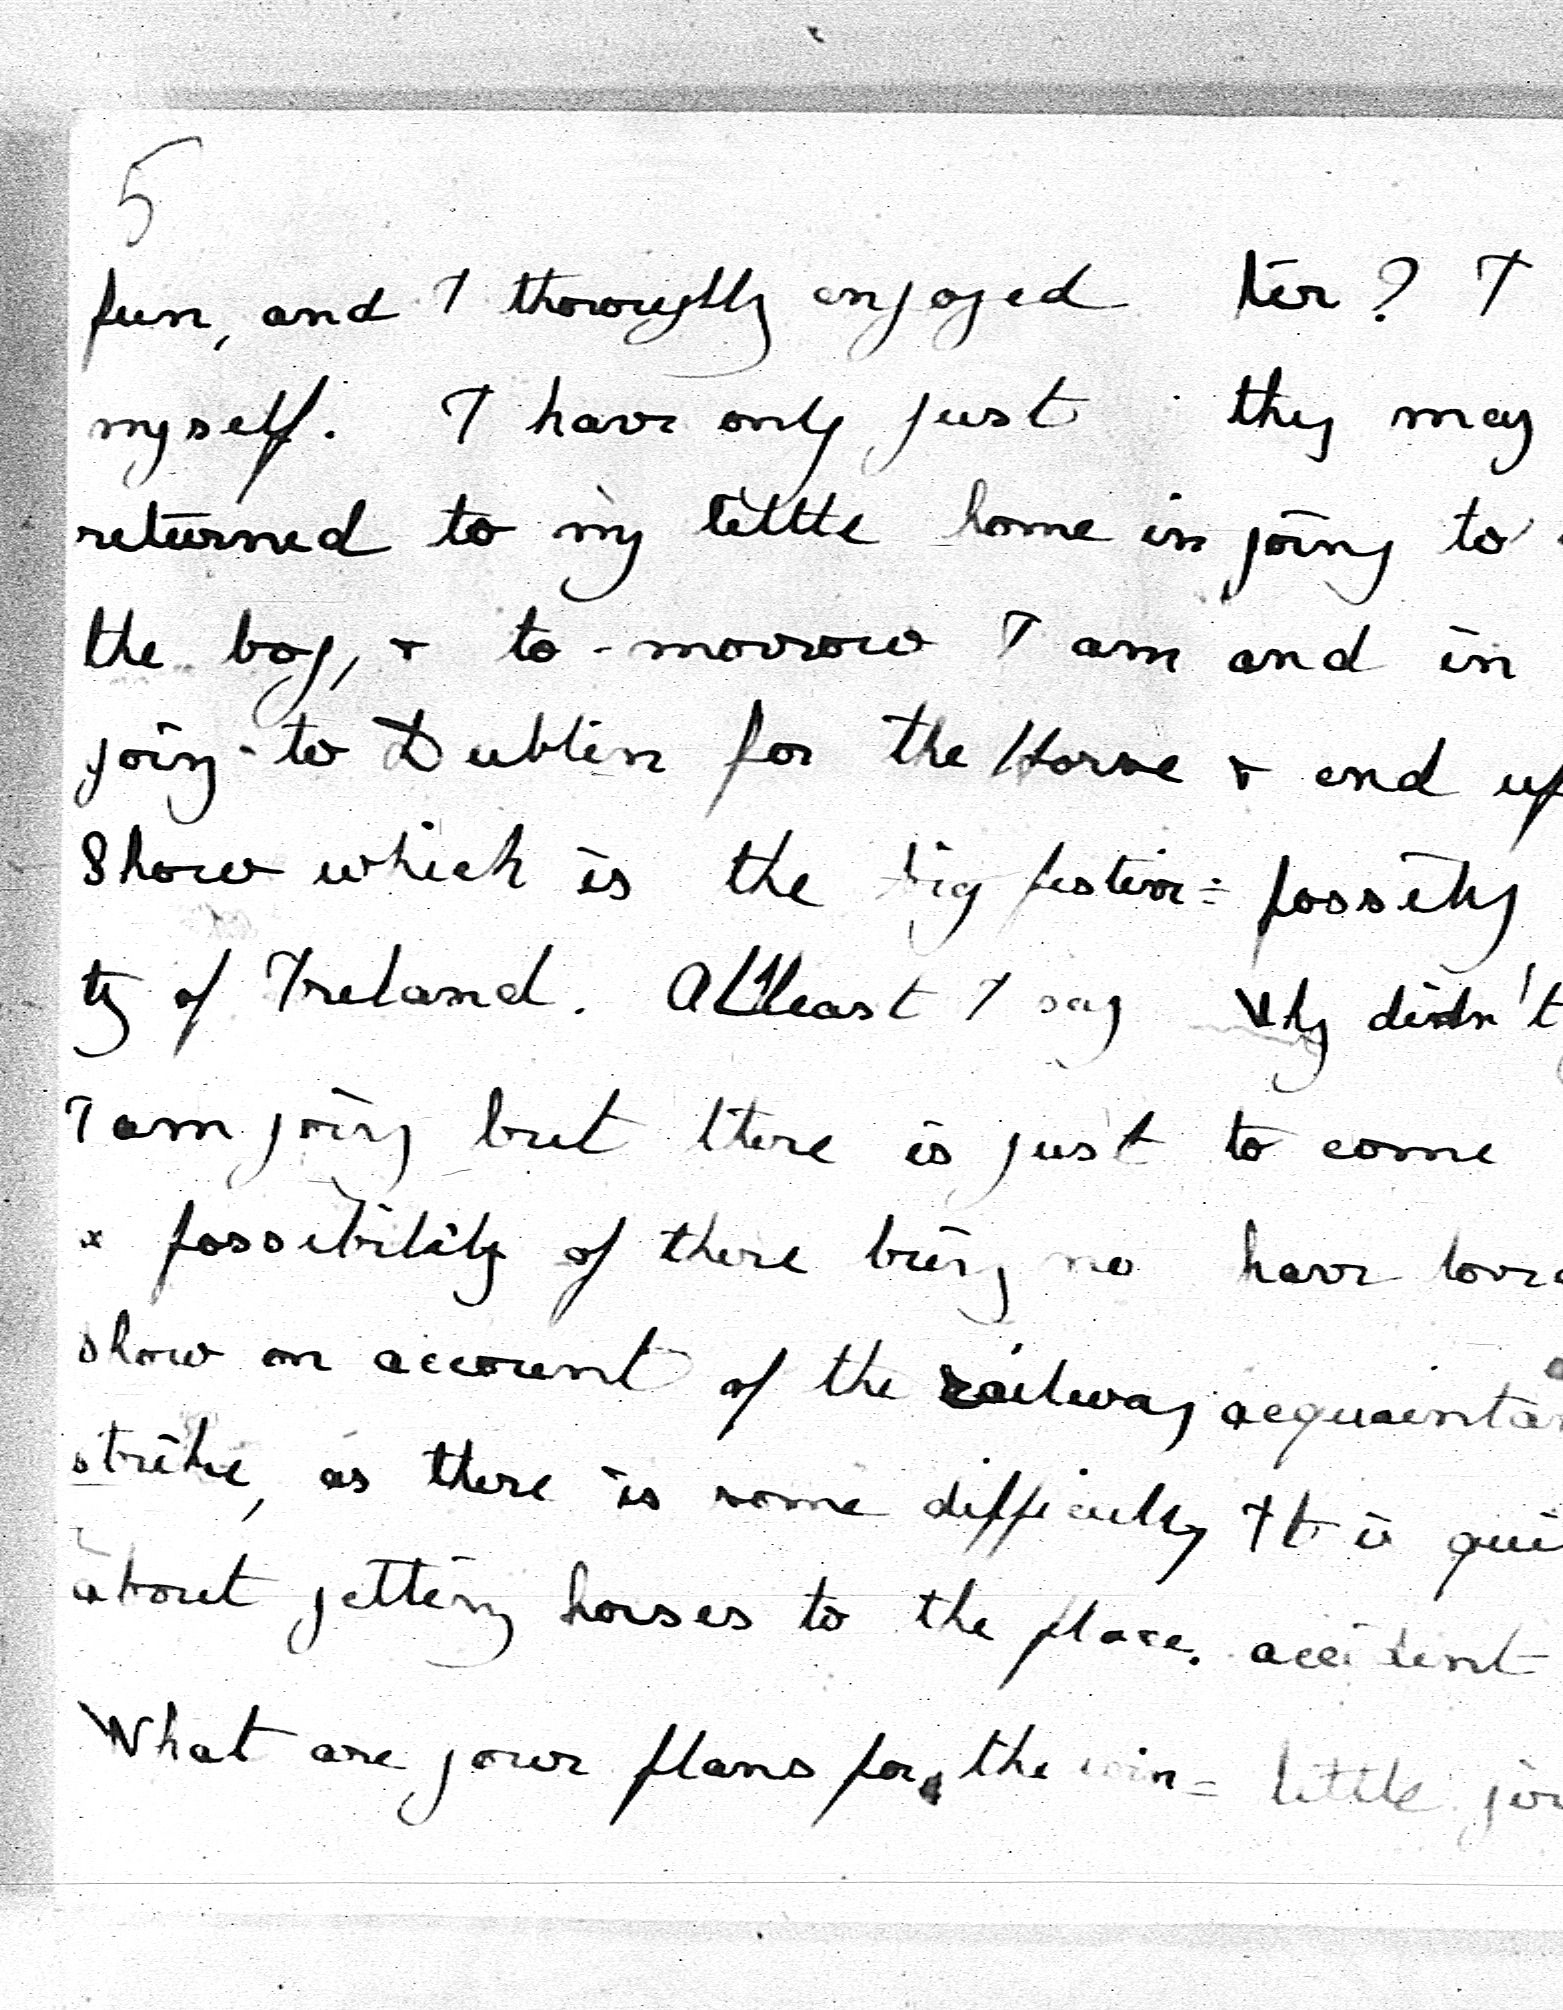 5
fun, and I thoroughly enjoyed
myself. I have only just
returned to my little home in
the bog, & to-morrow I am
going to Dublin for the Horse
Show which is the big festivi=
ty of Ireland. At least I say
I am going but there is just
a possibility of there being no
show on account of the railway
strike, as there is some difficulty
about getting horses to the place.
What are your plans for the win=
ter? I
they may
going to
and in
& end up
possibly
Why didn't
to come
have loved
acquaintan
It is qui
accident
little